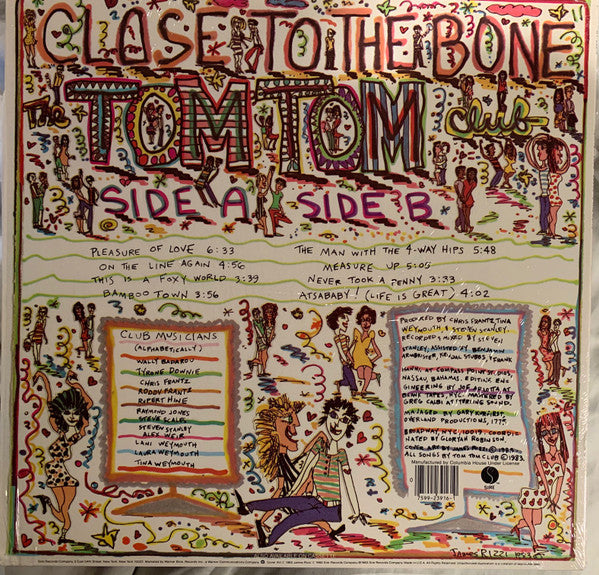 CLOSE TO THE BONE
The TOM TOM club
SIDE A SIDE B
PLEASURE OF LOVE 6:33
ON THE LINE AGAIN 4:56
THIS IS A FOXY WORLD 3:39
BAMBOO TOWN 3:56
THE MAN WITH THE 4-WAY HIPS 5:48
MEASURE UP 5:05
NEVER TOOK A PENNY 3:33
ATSABABY! (LIFE IS GREAT) 4:02
CLUB MUSICIANS
(ALPHABETICALLY)
WALLY BADAROU
TYRONE DOWNIE
CHRIS FRANTZ
RODDY FRANTZ
RUPERT HINE
RAYMOND JONES
STEVE SCALES
STEVEN STANLEY
ALEX WEIR
LANI WEYMOUTH
LAURA WEYMOUTH
TINA WEYMOUTH
PRODUCED BY CHRIS FRANTZ, TINA
WEYMOUTH & STEVEN STANLEY.
RECORDED & MIXED BY STEVEN
STANLEY, ASSISTED BY BENJAMIN
ARMBRISTER, KENDAL STUBBS, & FRANK
AT COMPASS POINT STUDIOS,
NASSAU, BAHAMAS. EDITING ENG
GINEERING BY
TAPES, NYC. MASTERED BY
GREG CALBI AT STERLING SOUND.
MANAGED BY GARY KURFIRST,
OVERLAND PRODUCTIONS, 1775
BROADWAY, NYC, 10019. COORDIE
NATED BY GLORYAH ROBINSON
COVER ART BY JAMES RIZZI
ALL SONGS BY TOM TOM CLUB © 1983.
Manufactured by Columbia House Under License
7599-23916-
SIRE
JAMES RIZZI
ALSO AVAILABLE ON CASSETTE